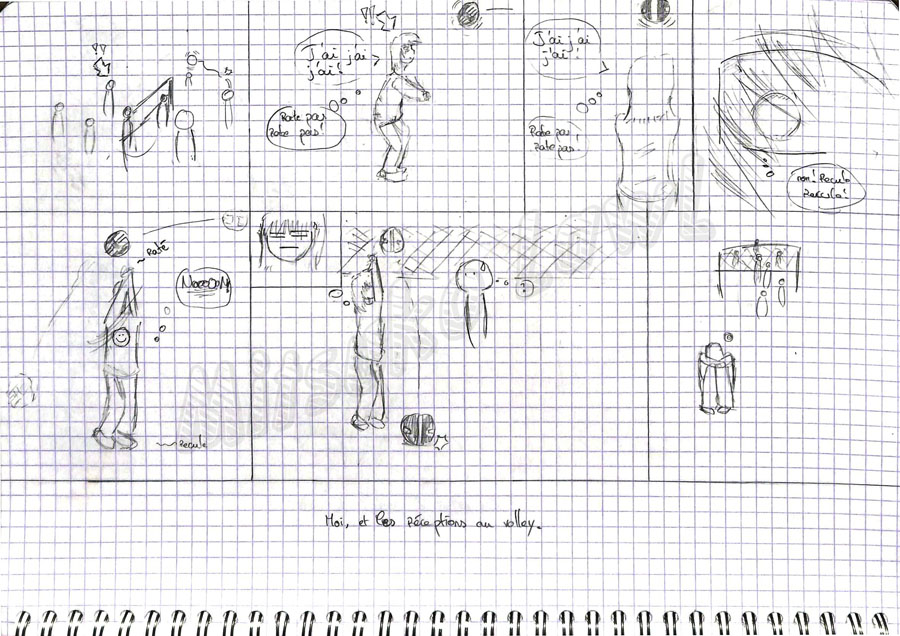 J'ai j'ai
j'ai!
Rate pas
Rate pas!
J'ai j'ai
j'ai!
Rate pas
Rate pas!
non! Recule
Recule!
Raté
NoooON
Recule
Moi, et les réceptions au volley.